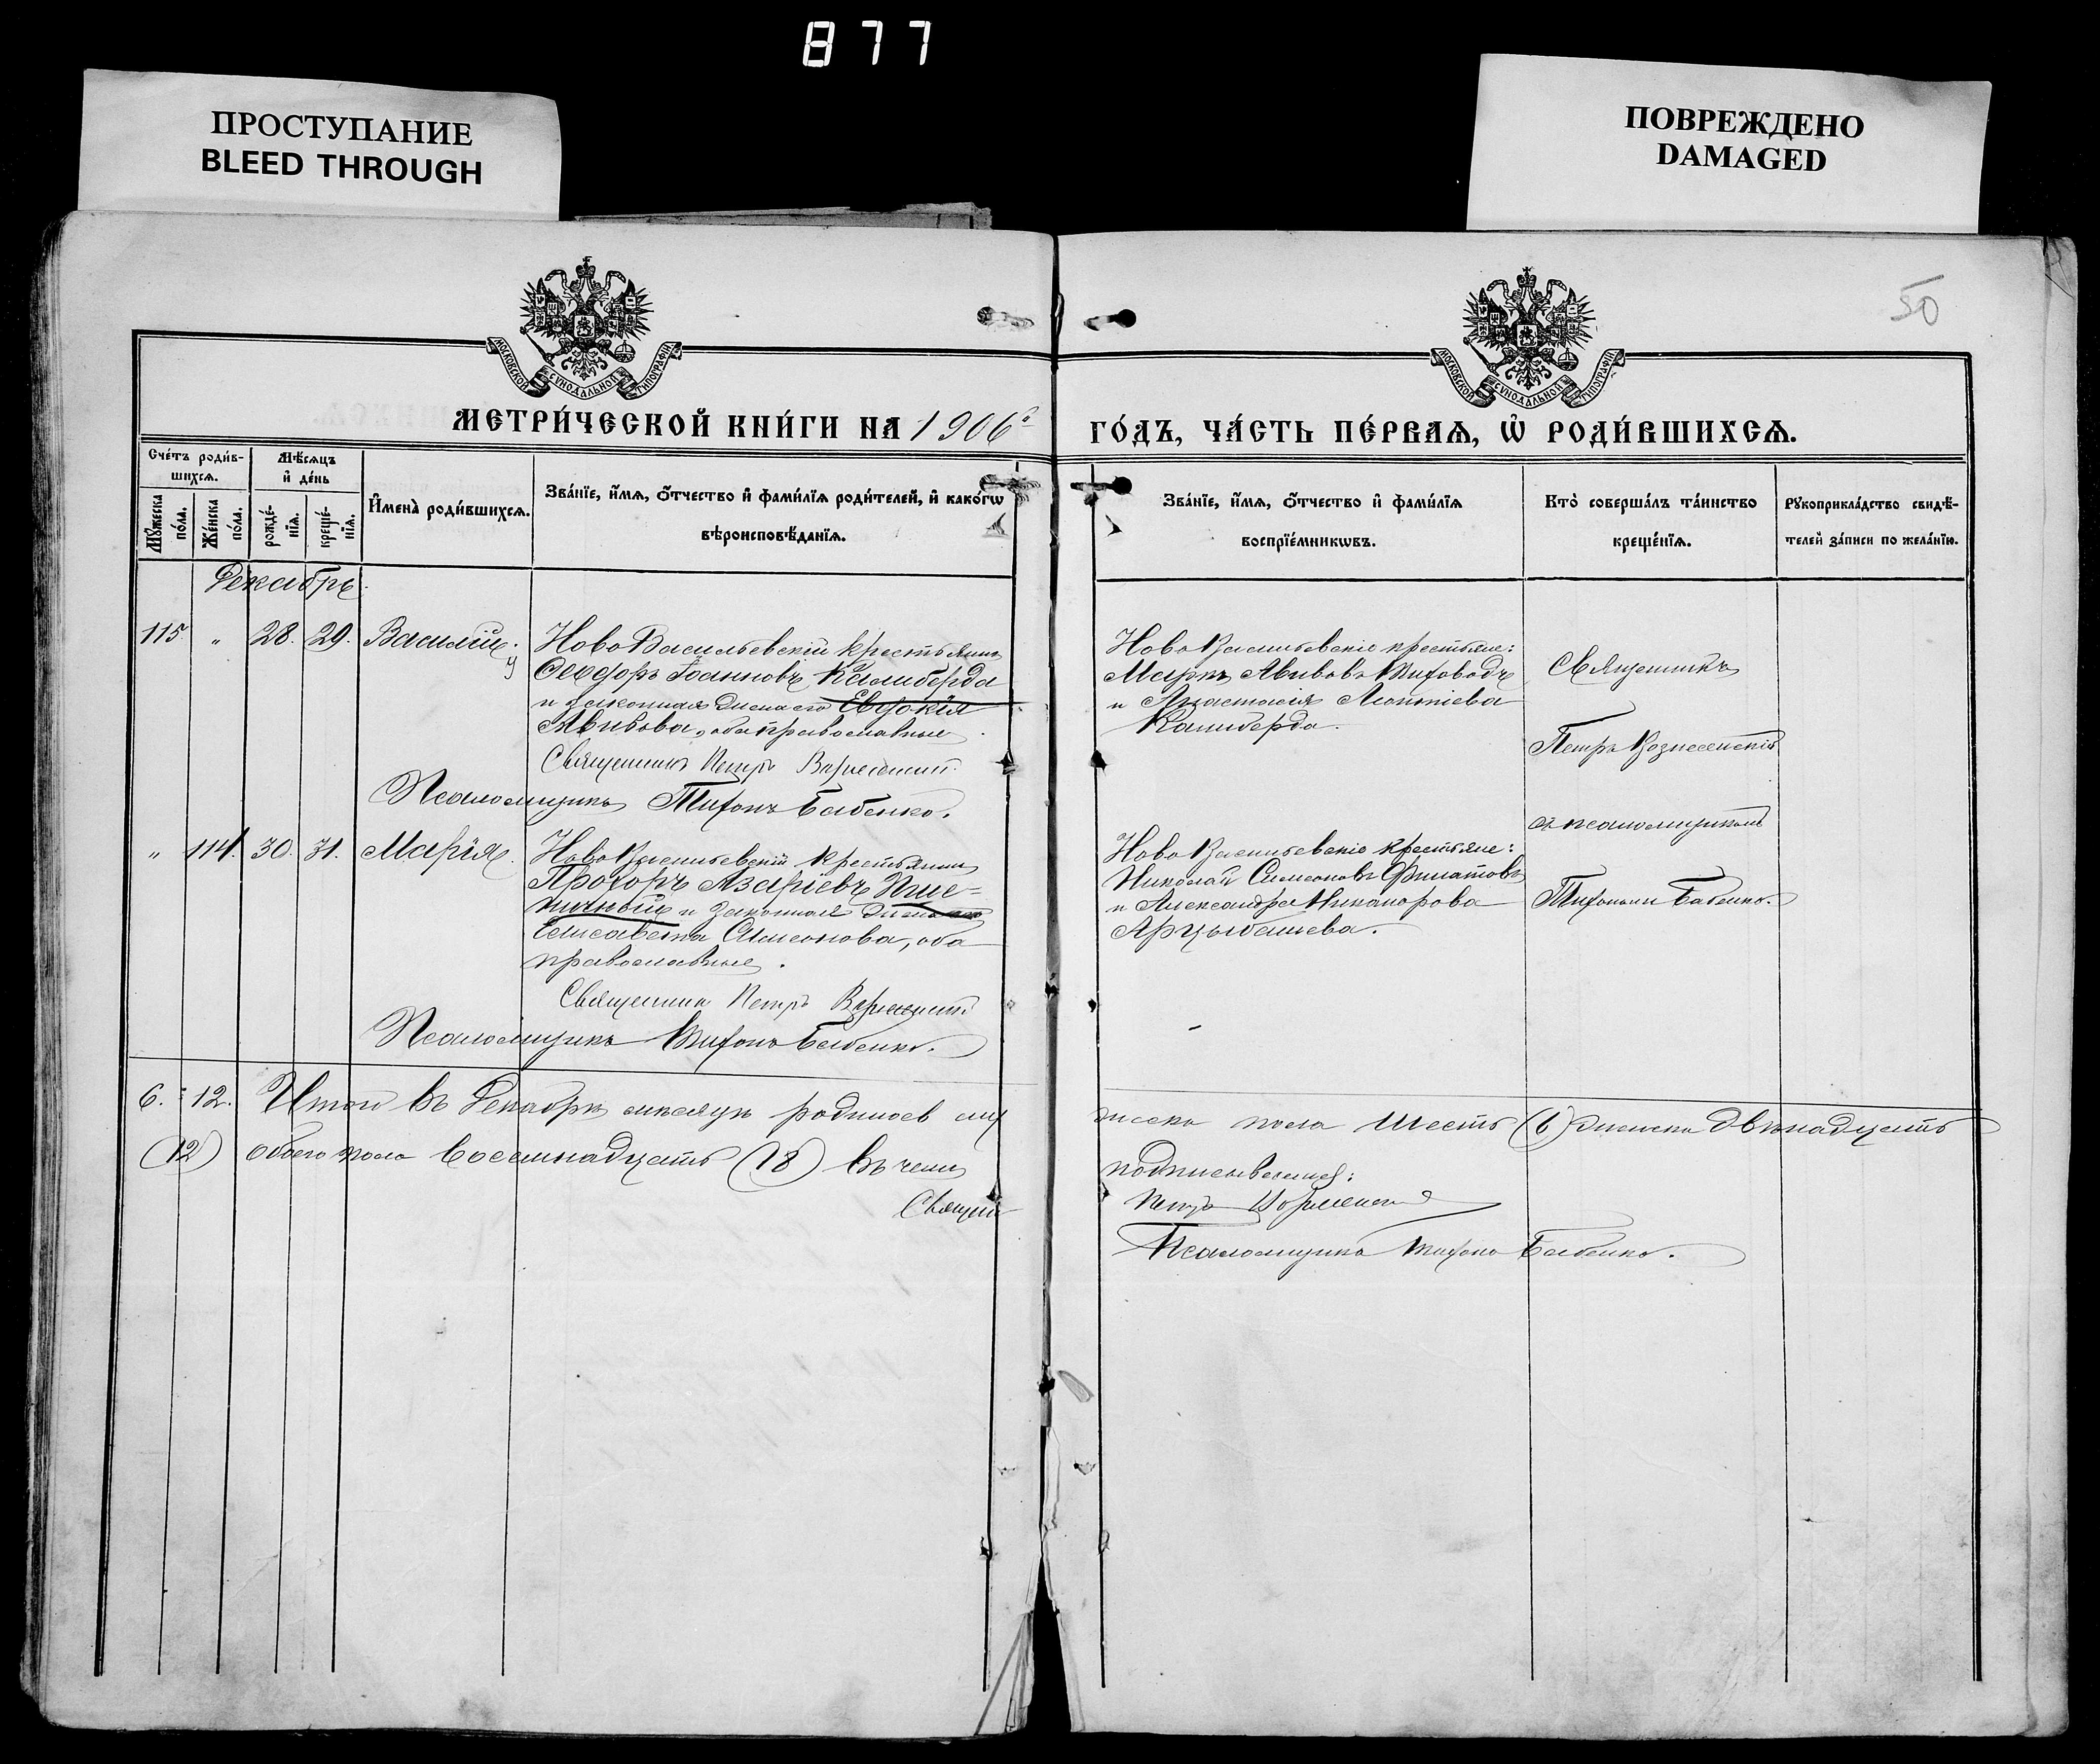 877
ПРОСТУПАНИЕ
BLEED THROUGH
ПОВРЕЖДЕНО
DAMAGED
50
МОСКОВСКОЙ СѴНОДАЛЬНОЙ ТИПОГРАФІИ
МОСКОВСКОЙ СѴНОДАЛЬНОЙ ТИПОГРАФІИ
МЕТРИ́ЧЕСКОЙ КНИ́ГИ НА 1906 г
ГО́ДЪ, ЧА́СТЬ ПЕ́РВАѦ, Ѡ҆ РОДИ́ВШИХСѦ.
Сче́тъ роди́в-
шихсѧ.
Мѣ́сѧцъ
и҆ де́нь
Мꙋ́жеска по́ла.
Же́нска по́ла.
рожде́-
нїѧ.
креще́-
нїѧ.
И҆мена̀ роди́вшихсѧ.
Зва́нїе, и҆́мѧ, ѻ҆́тчество и҆ фами́лїѧ роди́телей, и҆ како́гѡ
вѣроисповѣ́данїѧ.
Зва́нїе, и҆́мѧ, ѻ҆́тчество и҆ фами́лїѧ
воспрїе́мникѡвъ.
Кто̀ соверша́лъ та́инство
креще́нїѧ.
Рꙋкоприкла́дство свидѣ́-
телей за́писи по жела́нїю.
Декабрь.
115. " 28. 29. Василій
Ново Васильевскій крестьянинъ
Ѳеодоръ Іоанновъ Калиберда
и законная жена его Евдокія
Авивова, оба православные.
Священникъ Петръ Вознесенскій
Псаломщикъ Тихонъ Бабенко.
Ново Васильевскіе крестьяне:
Маркъ Авивовъ Тиховодъ
и Анастасія Леонтіева
Калиберда.
Священникъ
Петръ Вознесенскій
съ псаломщикомъ
Тихономъ Бабенко.
" 114. 30. 31. Марія.
Ново Васильевскій крестьянинъ
Прохоръ Азаріевъ Пше-
ничный и законная жена его
Елисавета Симеонова, оба
православные.
Священникъ Петръ Вознесенскій
Псаломщикъ Тихонъ Бабенко.
Ново Васильевскіе крестьяне:
Николай Симеоновъ Филатовъ
и Александра Никанорова
Арцыбашева.
6. 12. Итого въ Декабрѣ мѣсяцѣ родилось му
жеска пола шесть (6) женска двѣнадцать
(12) обоего пола восемнадцать (18) въ чемъ
подписываемся:
Священ
Петръ Вознесенскій
Псаломщикъ Тихонъ Бабенко.